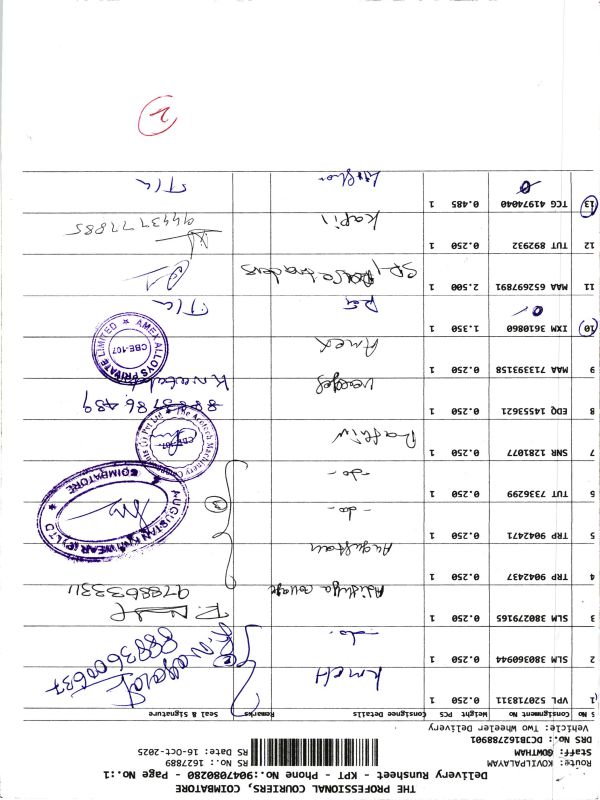 THE PROFESSIONAL COURIERS, COIMBATORE
Delivery Runsheet - KPT - Phone No.:9047080280 - Page No.:1
Route: KOVILPALAYAM
Staff: GOWTHAM
DRS NO.: DCJB162788901
Vehicle: Two Wheeler Delivery
RS No.: 1627889
RS Date: 16-Oct-2025
S No Consignment No Weight PCS Consignee Details Remarks Seal & Signature
1 VPL 520718311 0.250 1 KMCH
2 SLM 380360944 0.250 1 -do-
R. Nagaraj
8883600637
3 SLM 380279165 0.250 1 Adithya college
978863331
4 TRP 9042437 0.250 1 Augustan
5 TRP 9042471 0.250 1 -do-
6 TUT 7336299 0.250 1 -do-
3
AUGUSTAN KNITWEAR (P) LTD
COIMBATORE
7 SNR 1281077 0.250 1
8 EDQ 14553621 0.250 1
9 MAA 713393158 0.250 1 Amex
AMEX ALLOYS PRIVATE LIMITED
CBE-107
10 IXM 3610860 1.350 1
11 MAA 652627891 2.500 1
12 TUT 892932 0.250 1 Kapil
9443777885
13 TCG 41974040 0.485 1
2